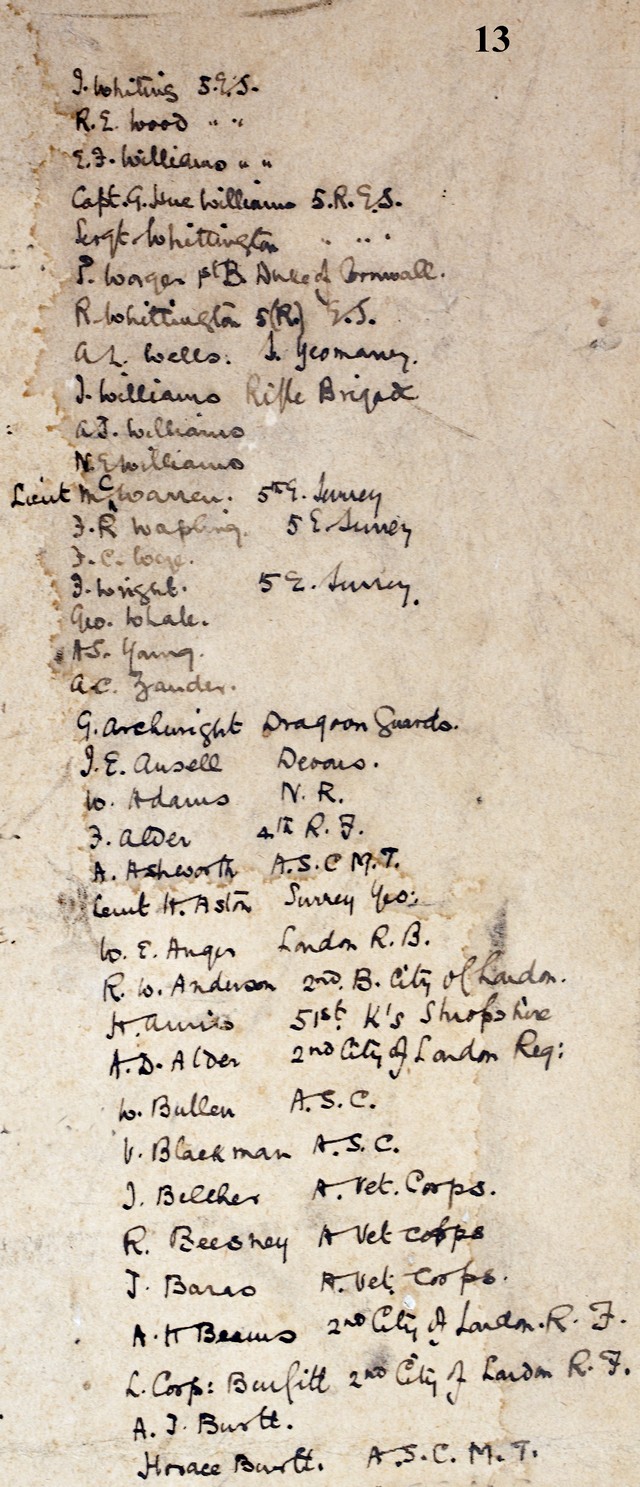 13
J. Whiting 5.E.S.
R. E. Wood " "
E. J. Williams " "
Capt. G. Hue Williams 5.R.E.S.
Sergt. Whittington " " "
P. Wager 1st B. Duke of Cornwall.
R. Whittington 5(R.) E.S.
A L. Wells. S. Yeomanry.
J. Williams Rifle Brigade
A.J. Williams
N.E Williams
Lieut McC Warren. 5th E. Surrey
F. R Wapling. 5 E. Surrey
F. C.
J. Wright. 5 E. Surrey.
Geo. Whale.
A.S. Young.
A.C. Zander.
G. Archwright Dragoon Guards.
J. E. Ansell Devons.
W. Adams N. R.
F. Alder 4th R. F.
A. Ashworth A.S.C M.T.
Lieut H. Aston Surrey Yeo:
W. E. Anger London R. B.
R. W. Anderson 2nd. B. City of London.
H. 51st K's Shropshire
A. D. Alder 2nd City of London Reg:
W. Bullen A. S. C.
V. Blackman A. S. C.
J. Belcher A. Vet. Corps.
R. Beesney A Vet Corps
J. A. Vet. Corps.
A. H Beams 2nd City of London. R. F.
L. Corp: Burfitt 2nd City of London R. F.
A. J. Burtt.
Horace Burtt. A.S.C. M.T.